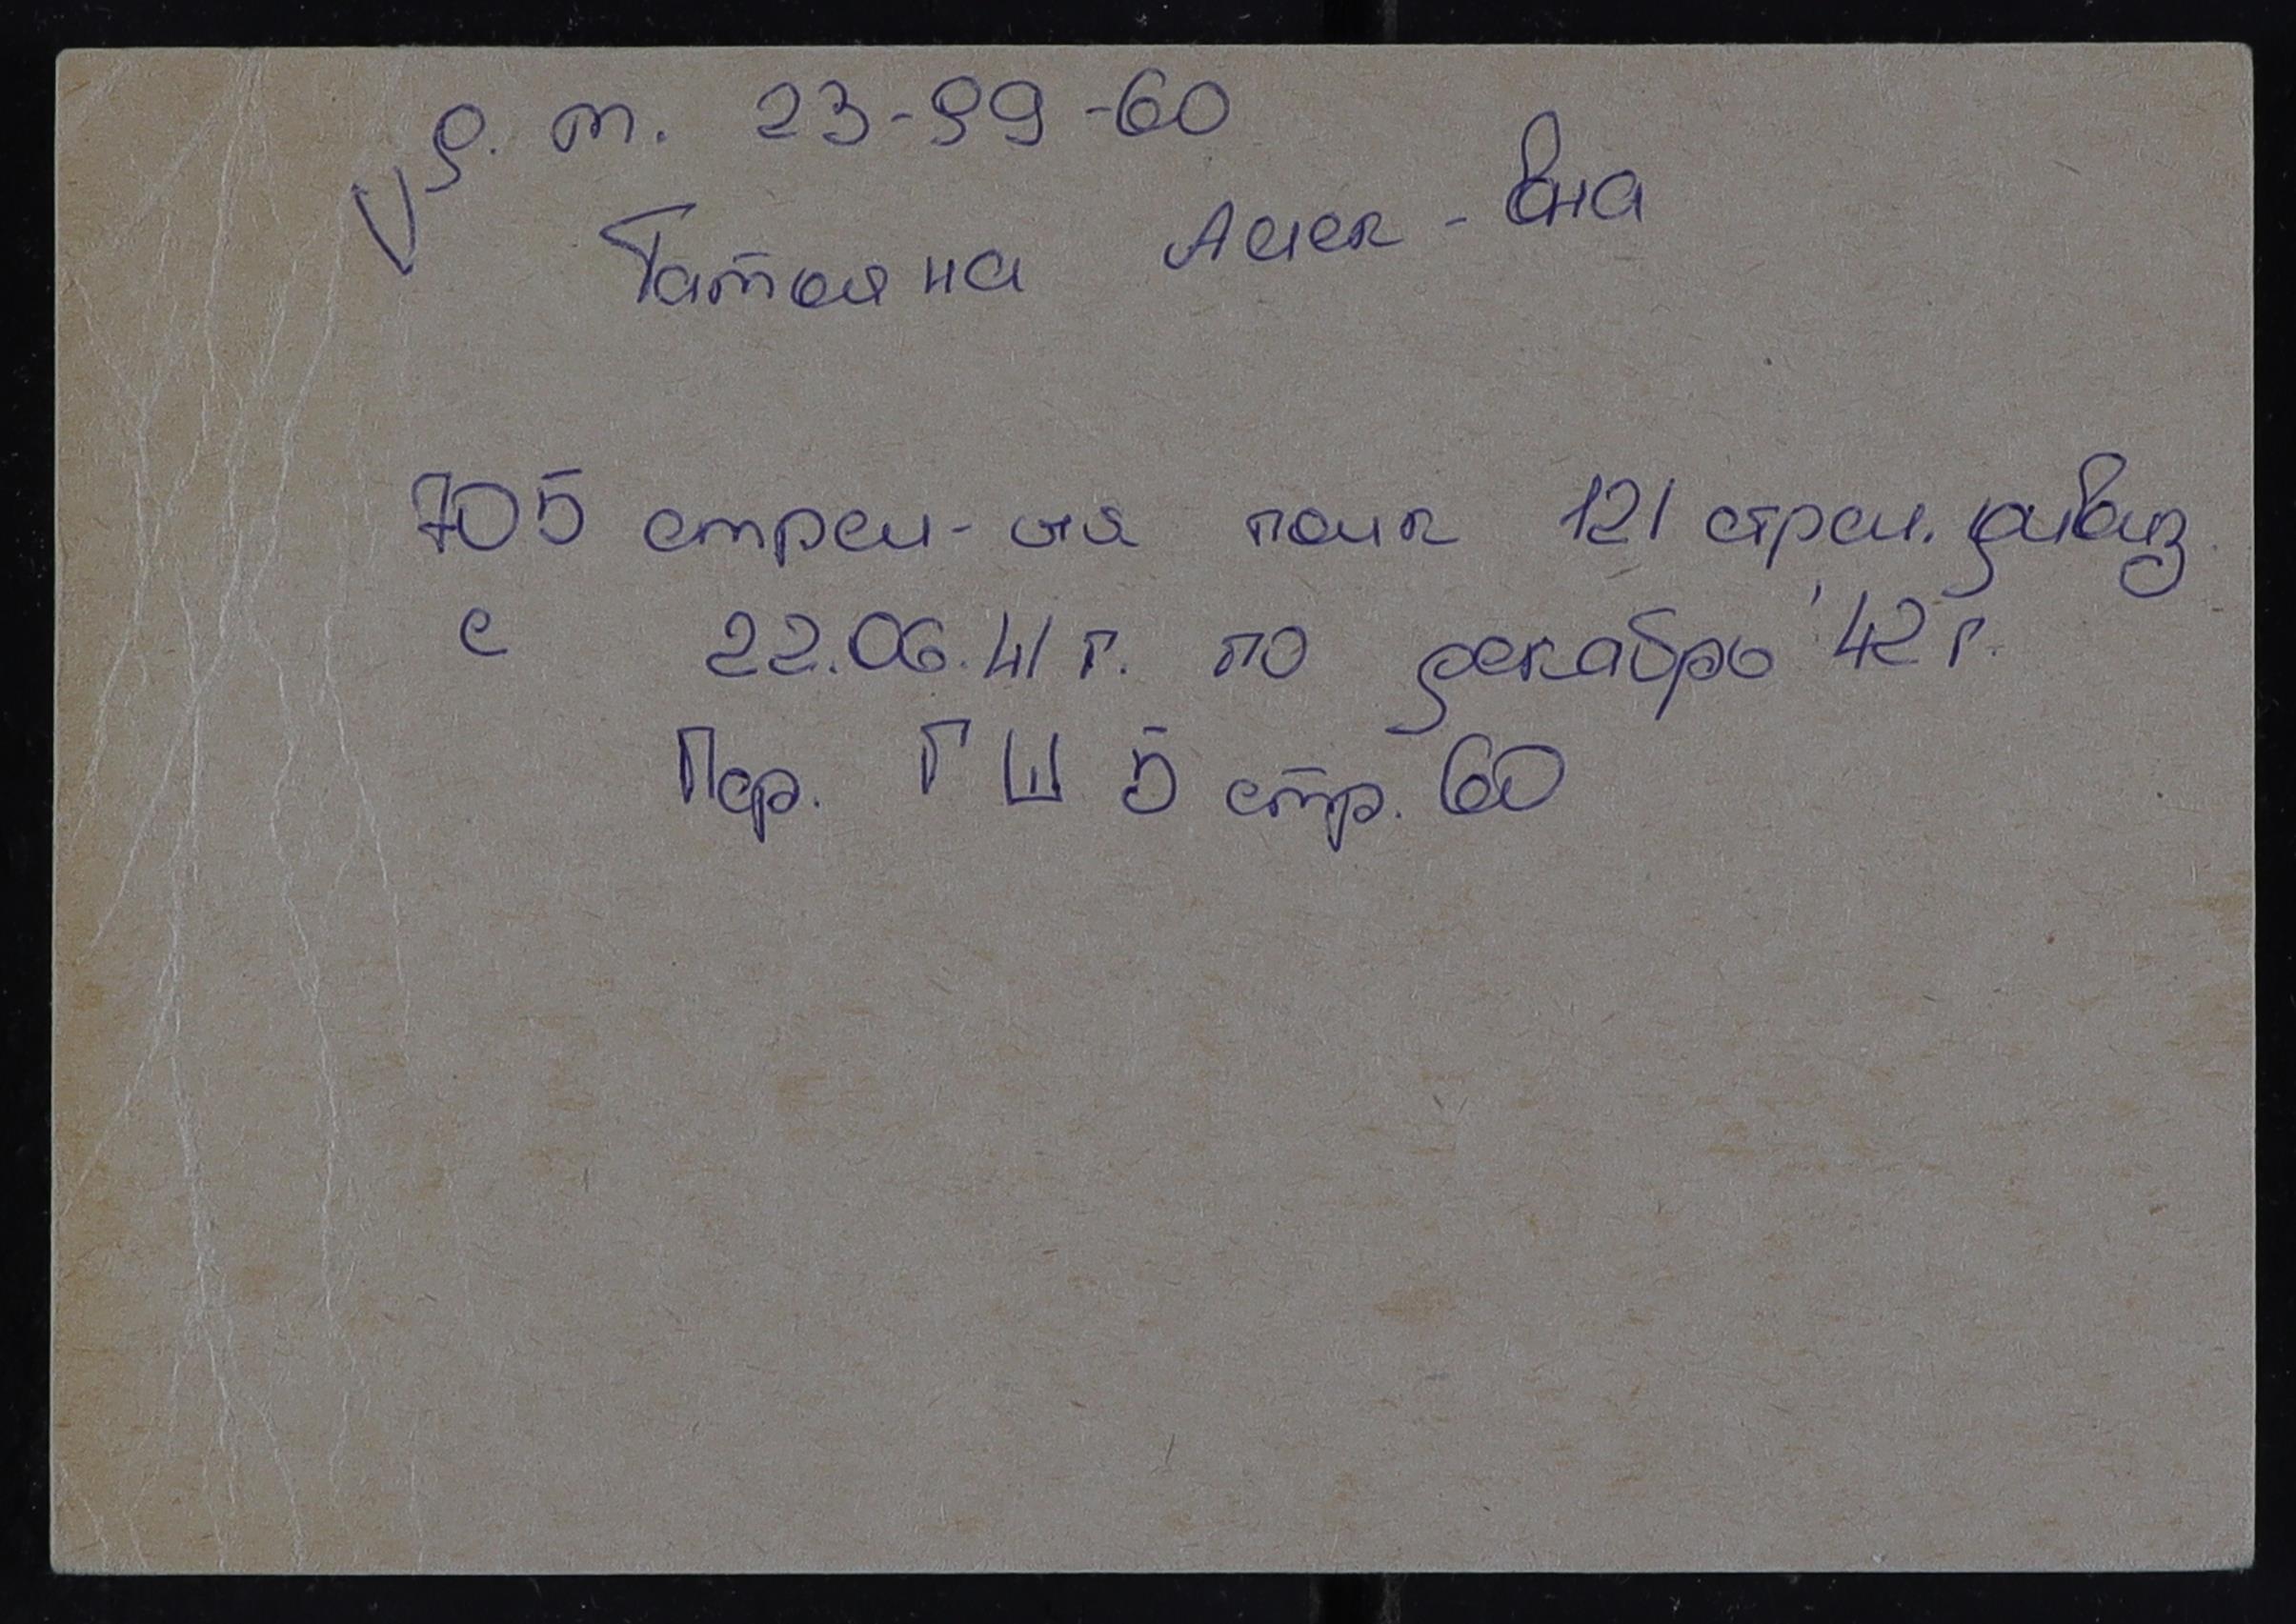 д. т. 23-99-60
Татьяна Алек-вна
705 стрел- полк 121 стрел. дивиз.
с 22.06.41 г. по декабрь '42 г.
Пер. ГШ 5 стр. 60